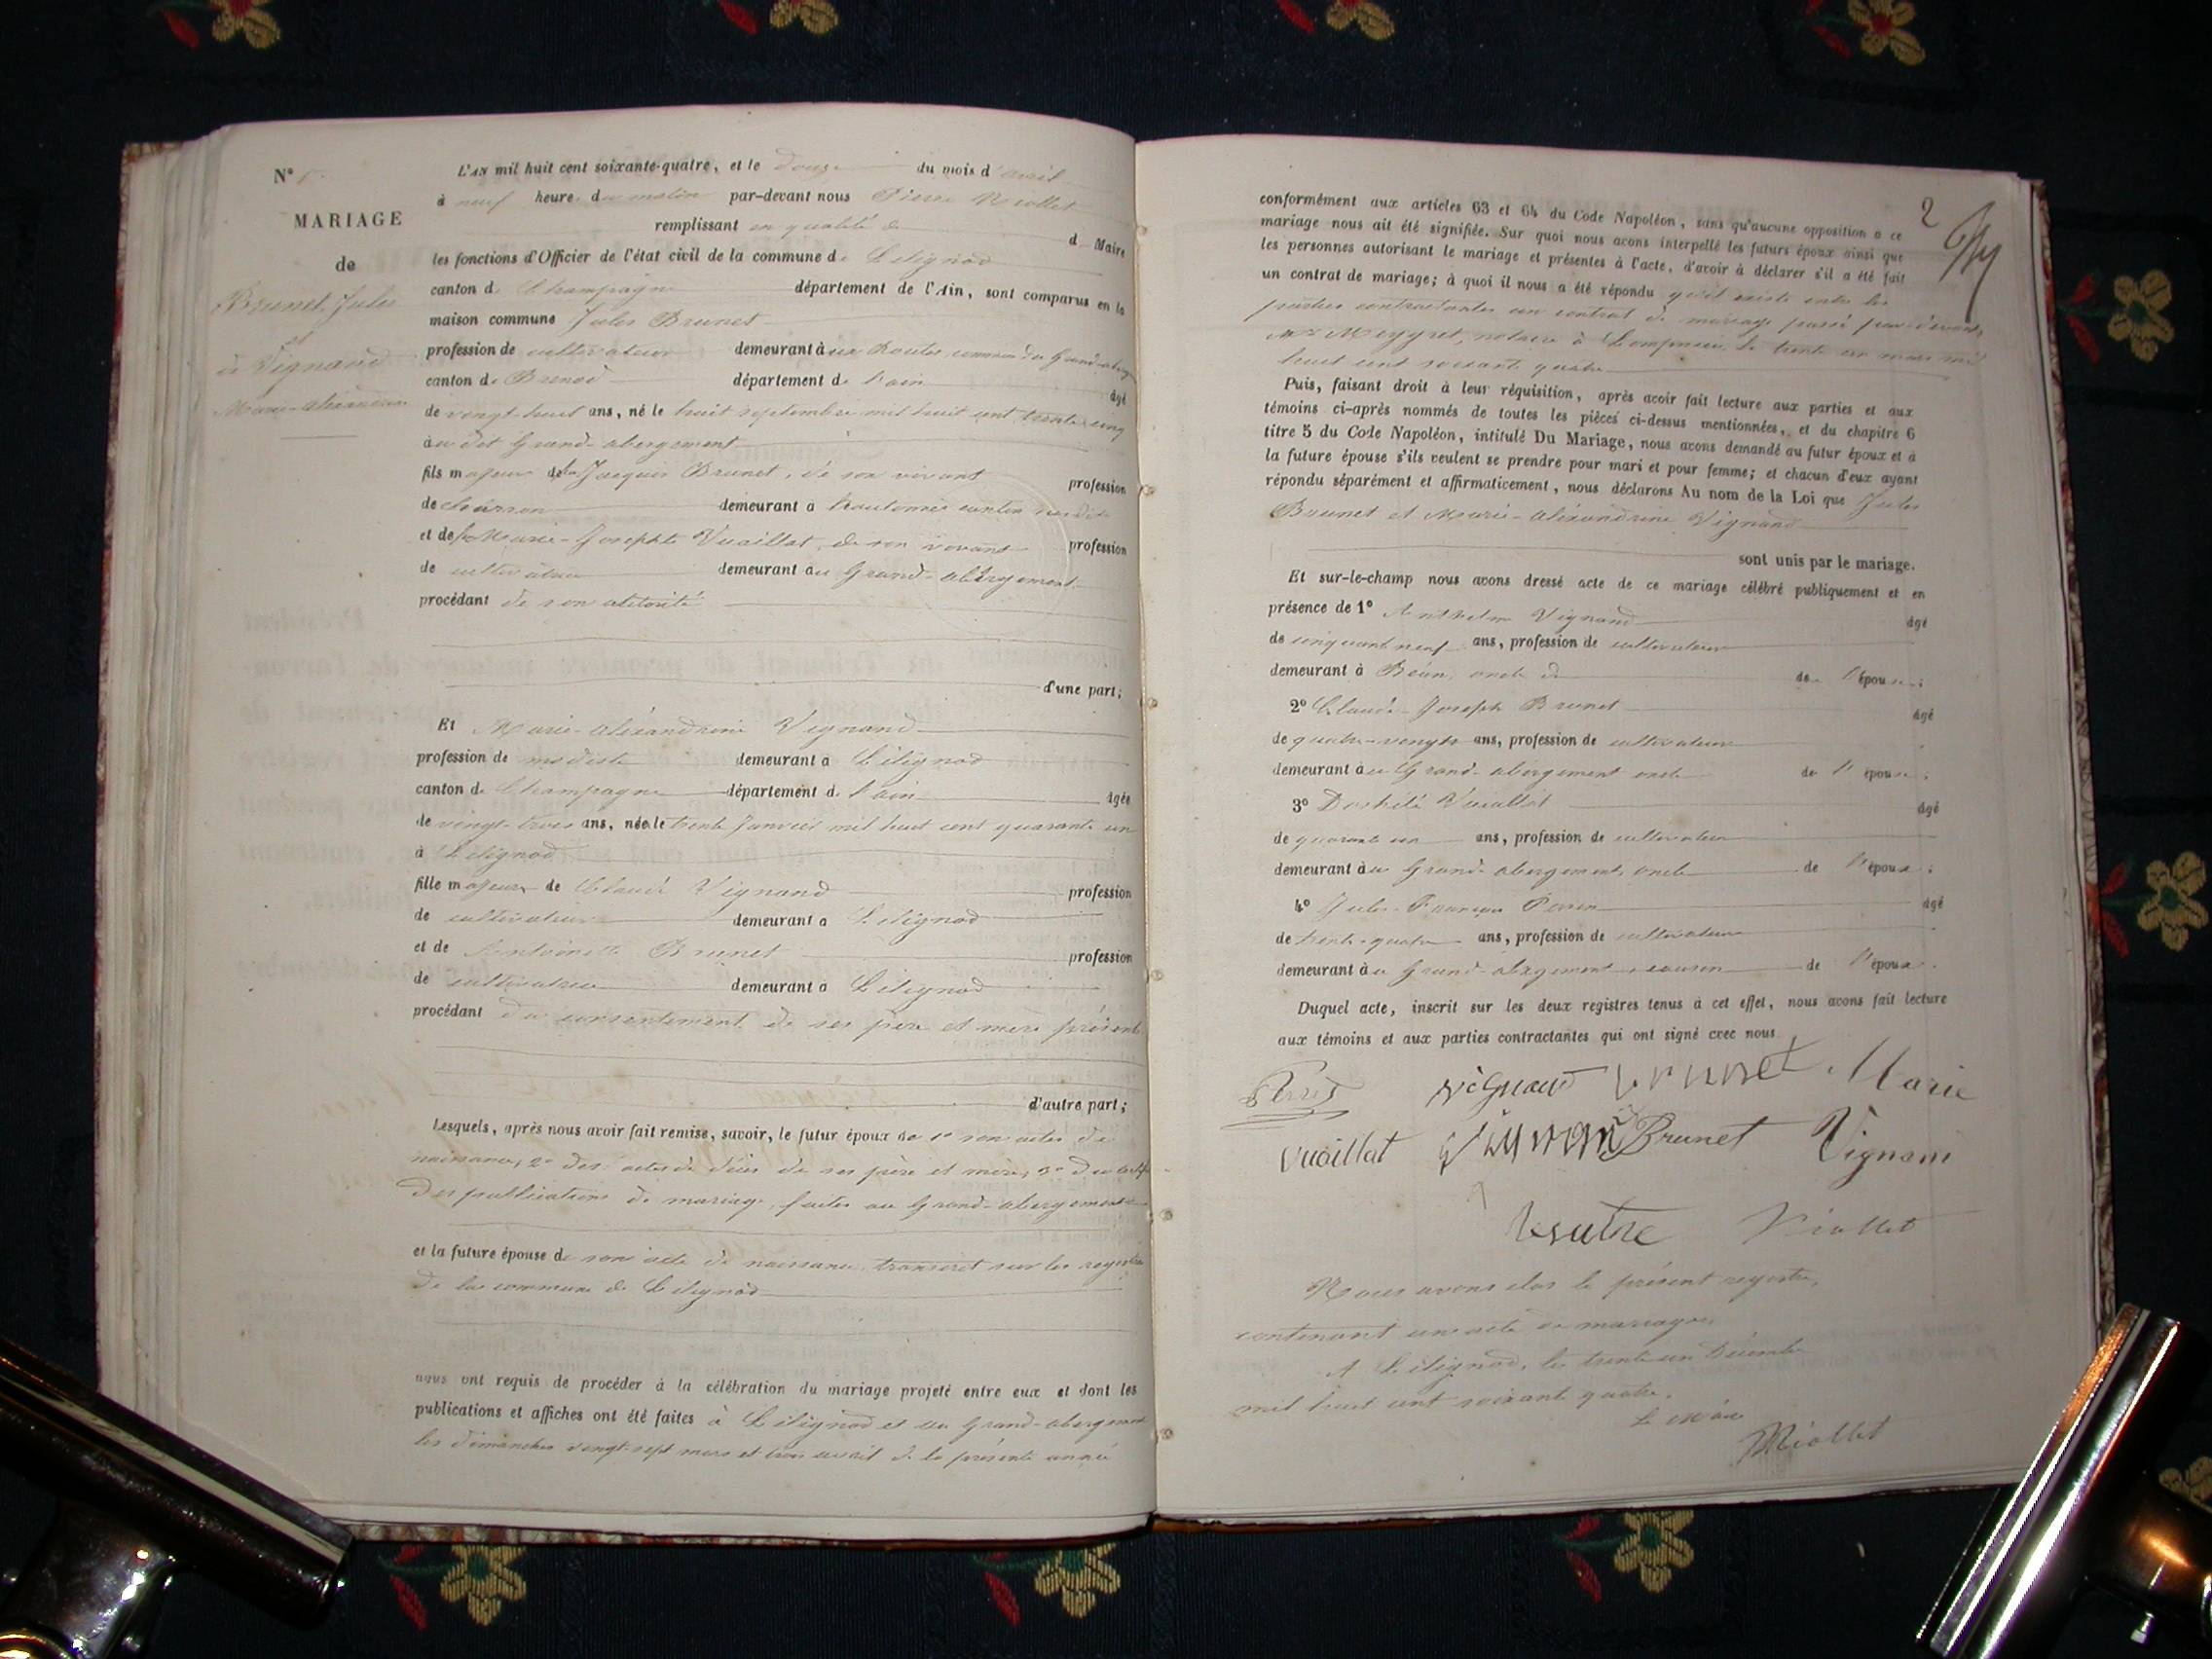 N° 1
MARIAGE
de
Brunet, Jules
et
Vignand
Marie-alexandrine
L'AN mil huit cent soixante-quatre, et le douze du mois d'avril
à neuf heure du matin par-devant nous Pierre Miollet
remplissant en qualité de d Maire
les fonctions d'Officier de l'état civil de la commune de Lilignod
canton de Champagne département de l'Ain, sont comparus en la
maison commune Jules Brunet
profession de cultivateur demeurant aux Routes, commune du Grand-abergement
canton de Brenod département de l'ain âgé
de vingt-huit ans, né le huit septembre mil huit cent trente cinq
au dit Grand-abergement
fils majeur de Jacques Brunet, de son vivant profession
de charron demeurant à hautonnes canton
et de Marie-Josephte Vuaillat, de son vivant profession
de cultivatrice demeurant au Grand-abergement
procédant de son autorité
d'une part;
Et Marie-alexandrine Vignand
profession de modiste demeurant à Lilignod
canton de Champagne département de l'ain âgée
de vingt-trois ans, née le trente Janvier mil huit cent quarante un
à Lilignod
fille majeure de Claude Vignand profession
de cultivateur demeurant à Lilignod
et de Antoinette Brunet profession
de cultivatrice demeurant à Lilignod
procédant du consentement de ses père et mère présents
d'autre part;
Lesquels, après nous avoir fait remise, savoir, le futur époux de 1° son acte de
naissance, 2° des actes de décès de ses père et mère, 3° du certif
des publications de mariage, faites au Grand-abergement
et la future épouse de son acte de naissance transcrit sur les registres
de la commune de Lilignod
nous ont requis de procéder à la célébration du mariage projeté entre eux et dont les
publications et affiches ont été faites à Lilignod et au Grand-abergement
les dimanches vingt-sept mars et trois avril de la présente année
2
conformément aux articles 63 et 64 du Code Napoléon, sans qu'aucune opposition a ce
mariage nous ait été signifiée. Sur quoi nous avons interpellé les futurs époux ainsi que
les personnes autorisant le mariage et présentes à l'acte, d'avoir à déclarer s'il a été fait
un contrat de mariage; à quoi il nous a été répondu qu'il existe entre les
parties contractantes un contrat de mariage passé par-devant
Me Meygret, notaire à Lompnieu, le trente un mars mil
huit cent soixante quatre
Puis, faisant droit à leur réquisition, après avoir fait lecture aux parties et aux
témoins ci-après nommés de toutes les pièces ci-dessus mentionnées, et du chapitre 6
titre 5 du Code Napoléon, intitulé Du Mariage, nous avons demandé au futur époux et à
la future épouse s'ils veulent se prendre pour mari et pour femme; et chacun d'eux ayant
répondu séparément et affirmativement, nous déclarons Au nom de la Loi que Jules
Brunet et Marie-Alexandrine Vignand
sont unis par le mariage.
Et sur-le-champ nous avons dressé acte de ce mariage célébré publiquement et en
présence de 1° Anthelme Vignand âgé
de cinquante neuf ans, profession de cultivateur
demeurant à Béon, oncle de de l'épouse;
2° Claude-Joseph Brunet âgé
de quatre-vingts ans, profession de cultivateur
demeurant au Grand-abergement oncle de l'époux;
3° Vuaillat âgé
de quarante un ans, profession de cultivateur
demeurant au Grand-abergement, oncle de l'époux;
4° Jules-François Perrin âgé
de trente-quatre ans, profession de cultivateur
demeurant au Grand-abergement, cousin de l'époux.
Duquel acte, inscrit sur les deux registres tenus à cet effet, nous avons fait lecture
aux témoins et aux parties contractantes qui ont signé avec nous
Vignand Brunet Marie
Vuaillat Brunet Vignand
Miollet
Nous avons clos le présent registre,
contenant un acte de mariage,
A Lilignod, le trente un Décembre
mil huit cent soixante quatre.
Le maire
Miollet